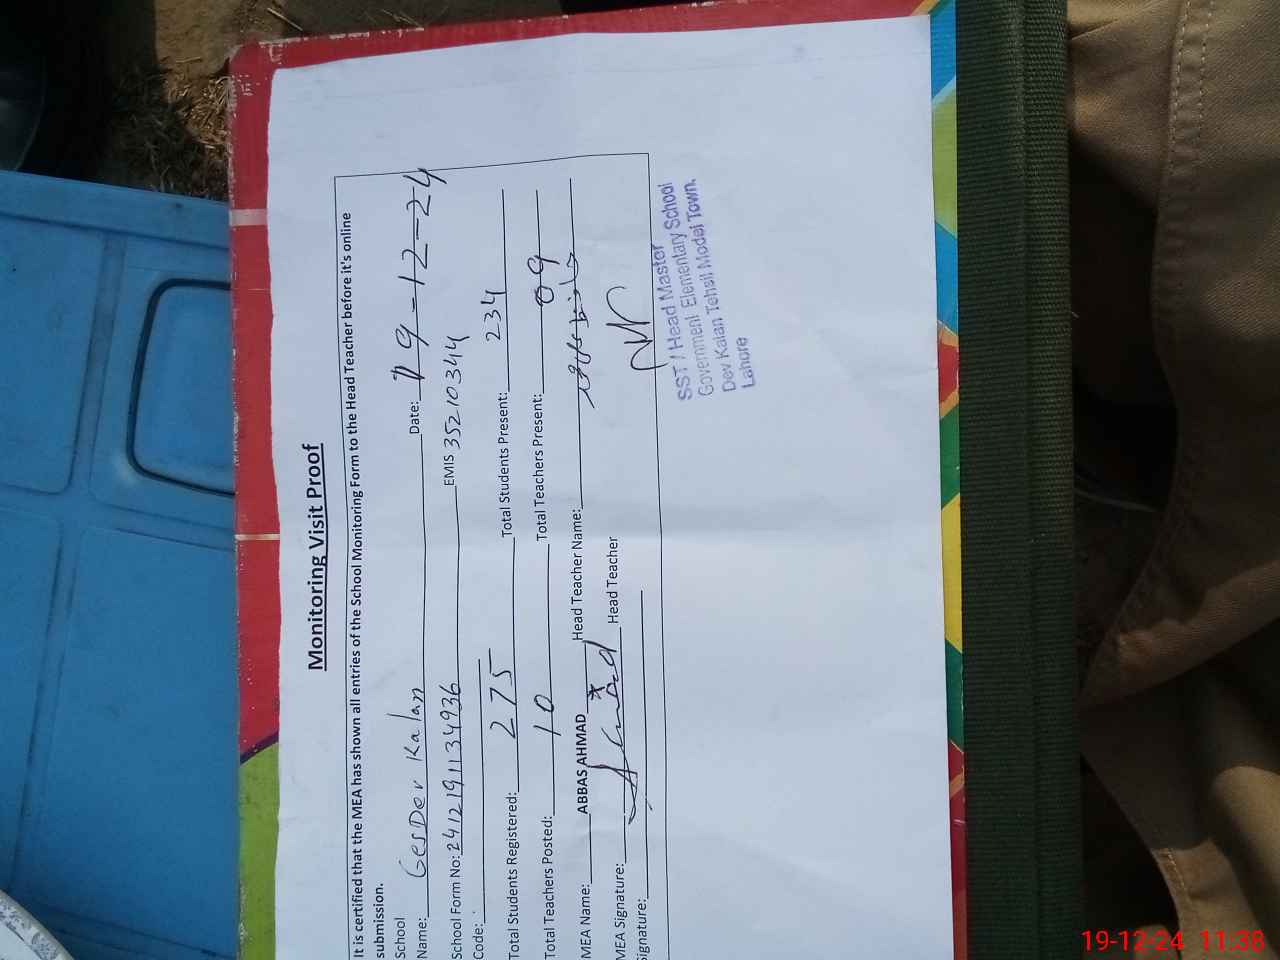 Monitoring Visit Proof
It is certified that the MEA has shown all entries of the School Monitoring Form to the Head Teacher before it's online
submission.
School
Name: GesDev Kalan Date: 19-12-24
School Form No: 2412191134936 EMIS 35210344
Code:
Total Students Registered: 275 Total Students Present: 234
Total Teachers Posted: 10 Total Teachers Present: 09
MEA Name: ABBAS AHMAD Head Teacher Name:
MEA Signature: Head Teacher
Signature:
SST / Head Master
Government Elementary School
Dev Kalan Tehsil Model Town,
Lahore
19-12-24 11:38